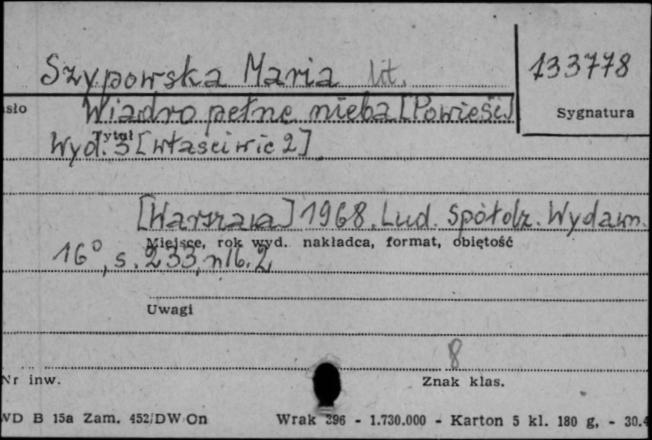 Szypowska Maria lit. 133778
asło Wiadro pełne nieba [Powieść] Sygnatura
Tytuł
Wyd. 3 [właściwie 2]
[Warszawa] 1968. Lud. Spółdz. Wydawn.
Miejsce, rok wyd. nakładca, format, objętość
16°, s. 233, nlb. 2
Uwagi
8
Nr inw. Znak klas.
WD B 15a Zam. 452/DW On Wrak 396 - 1.730.000 - Karton 5 kl. 180 g, - 30.4